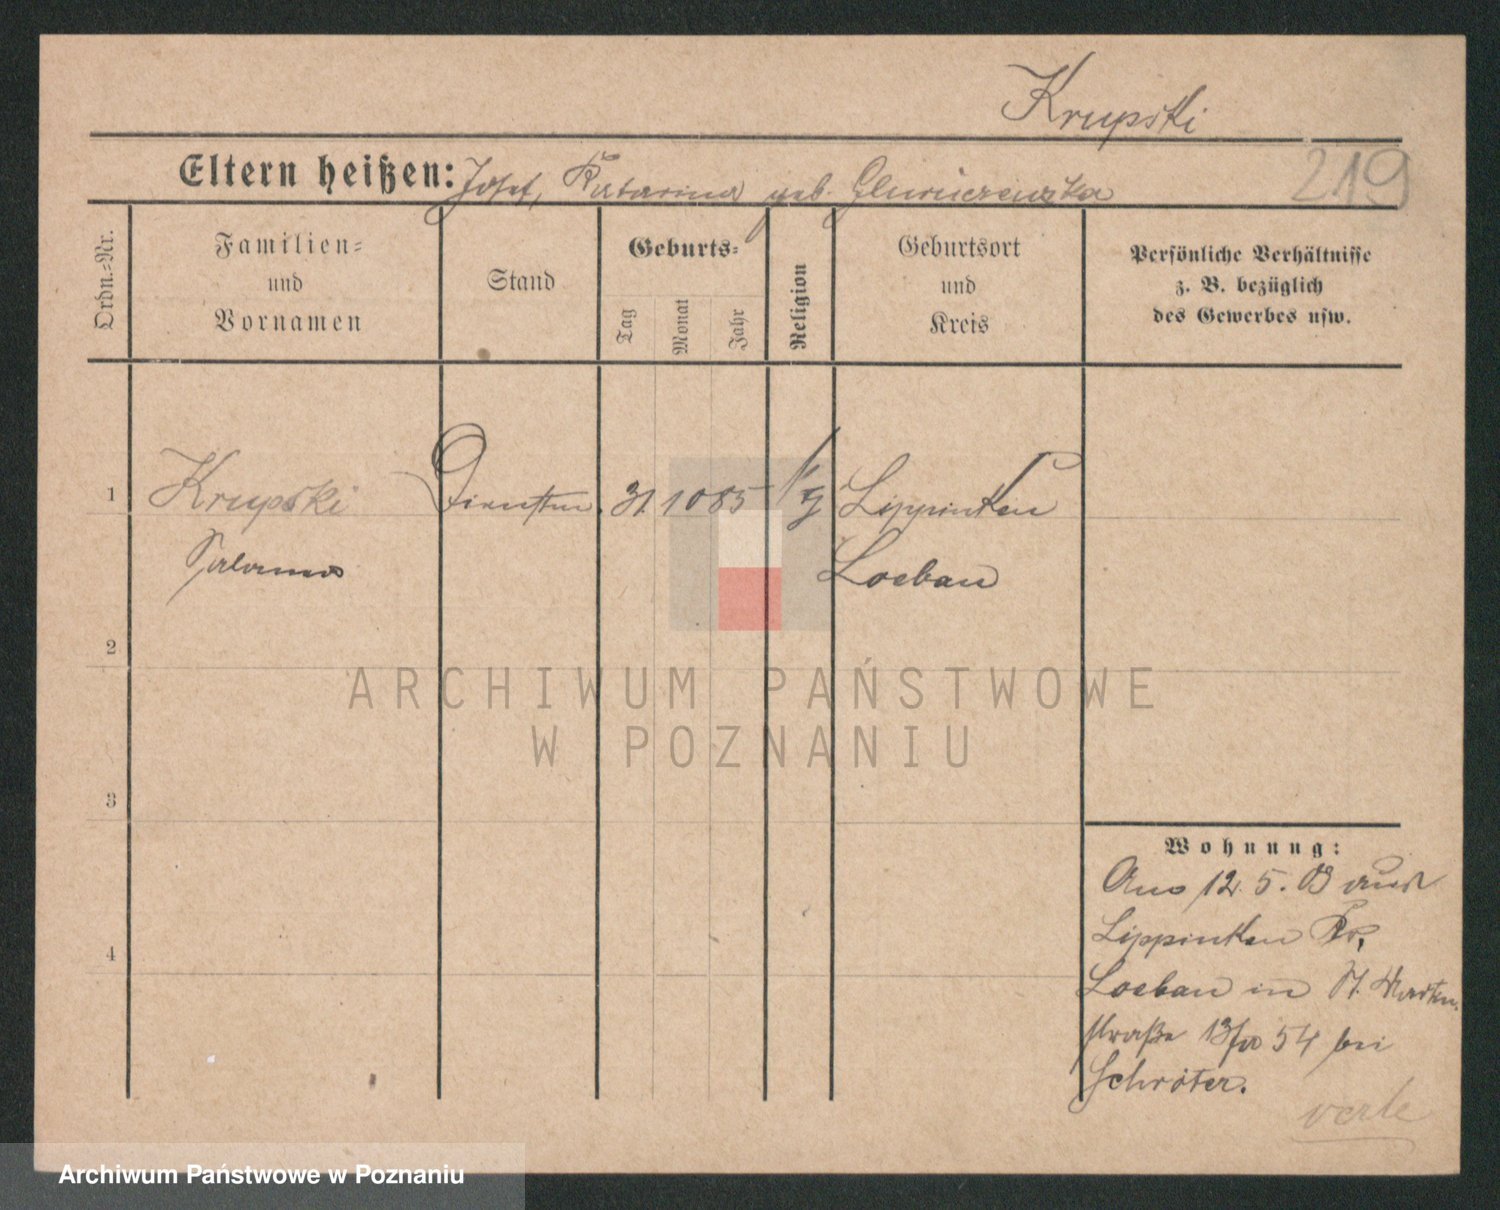 Krupski
219
Eltern heißen: Josef, Katarina geb.
Ordn.=Nr.
Familien=
und
Vornamen
Stand
Geburts=
Tag
Monat
Jahr
Religion
Geburtsort
und
Kreis
Persönliche Verhältnisse
z. B. bezüglich
des Gewerbes usw.
1
Krupski
31 10 85
Lippinken
Loebau
2
ARCHIWUM PAŃSTWOWE
W POZNANIU
3
4
Wohnung:
12. 5. 03
Lippinken Kr.
Loebau in St. Martin
straße 54 bei
Schröter.
Archiwum Państwowe w Poznaniu